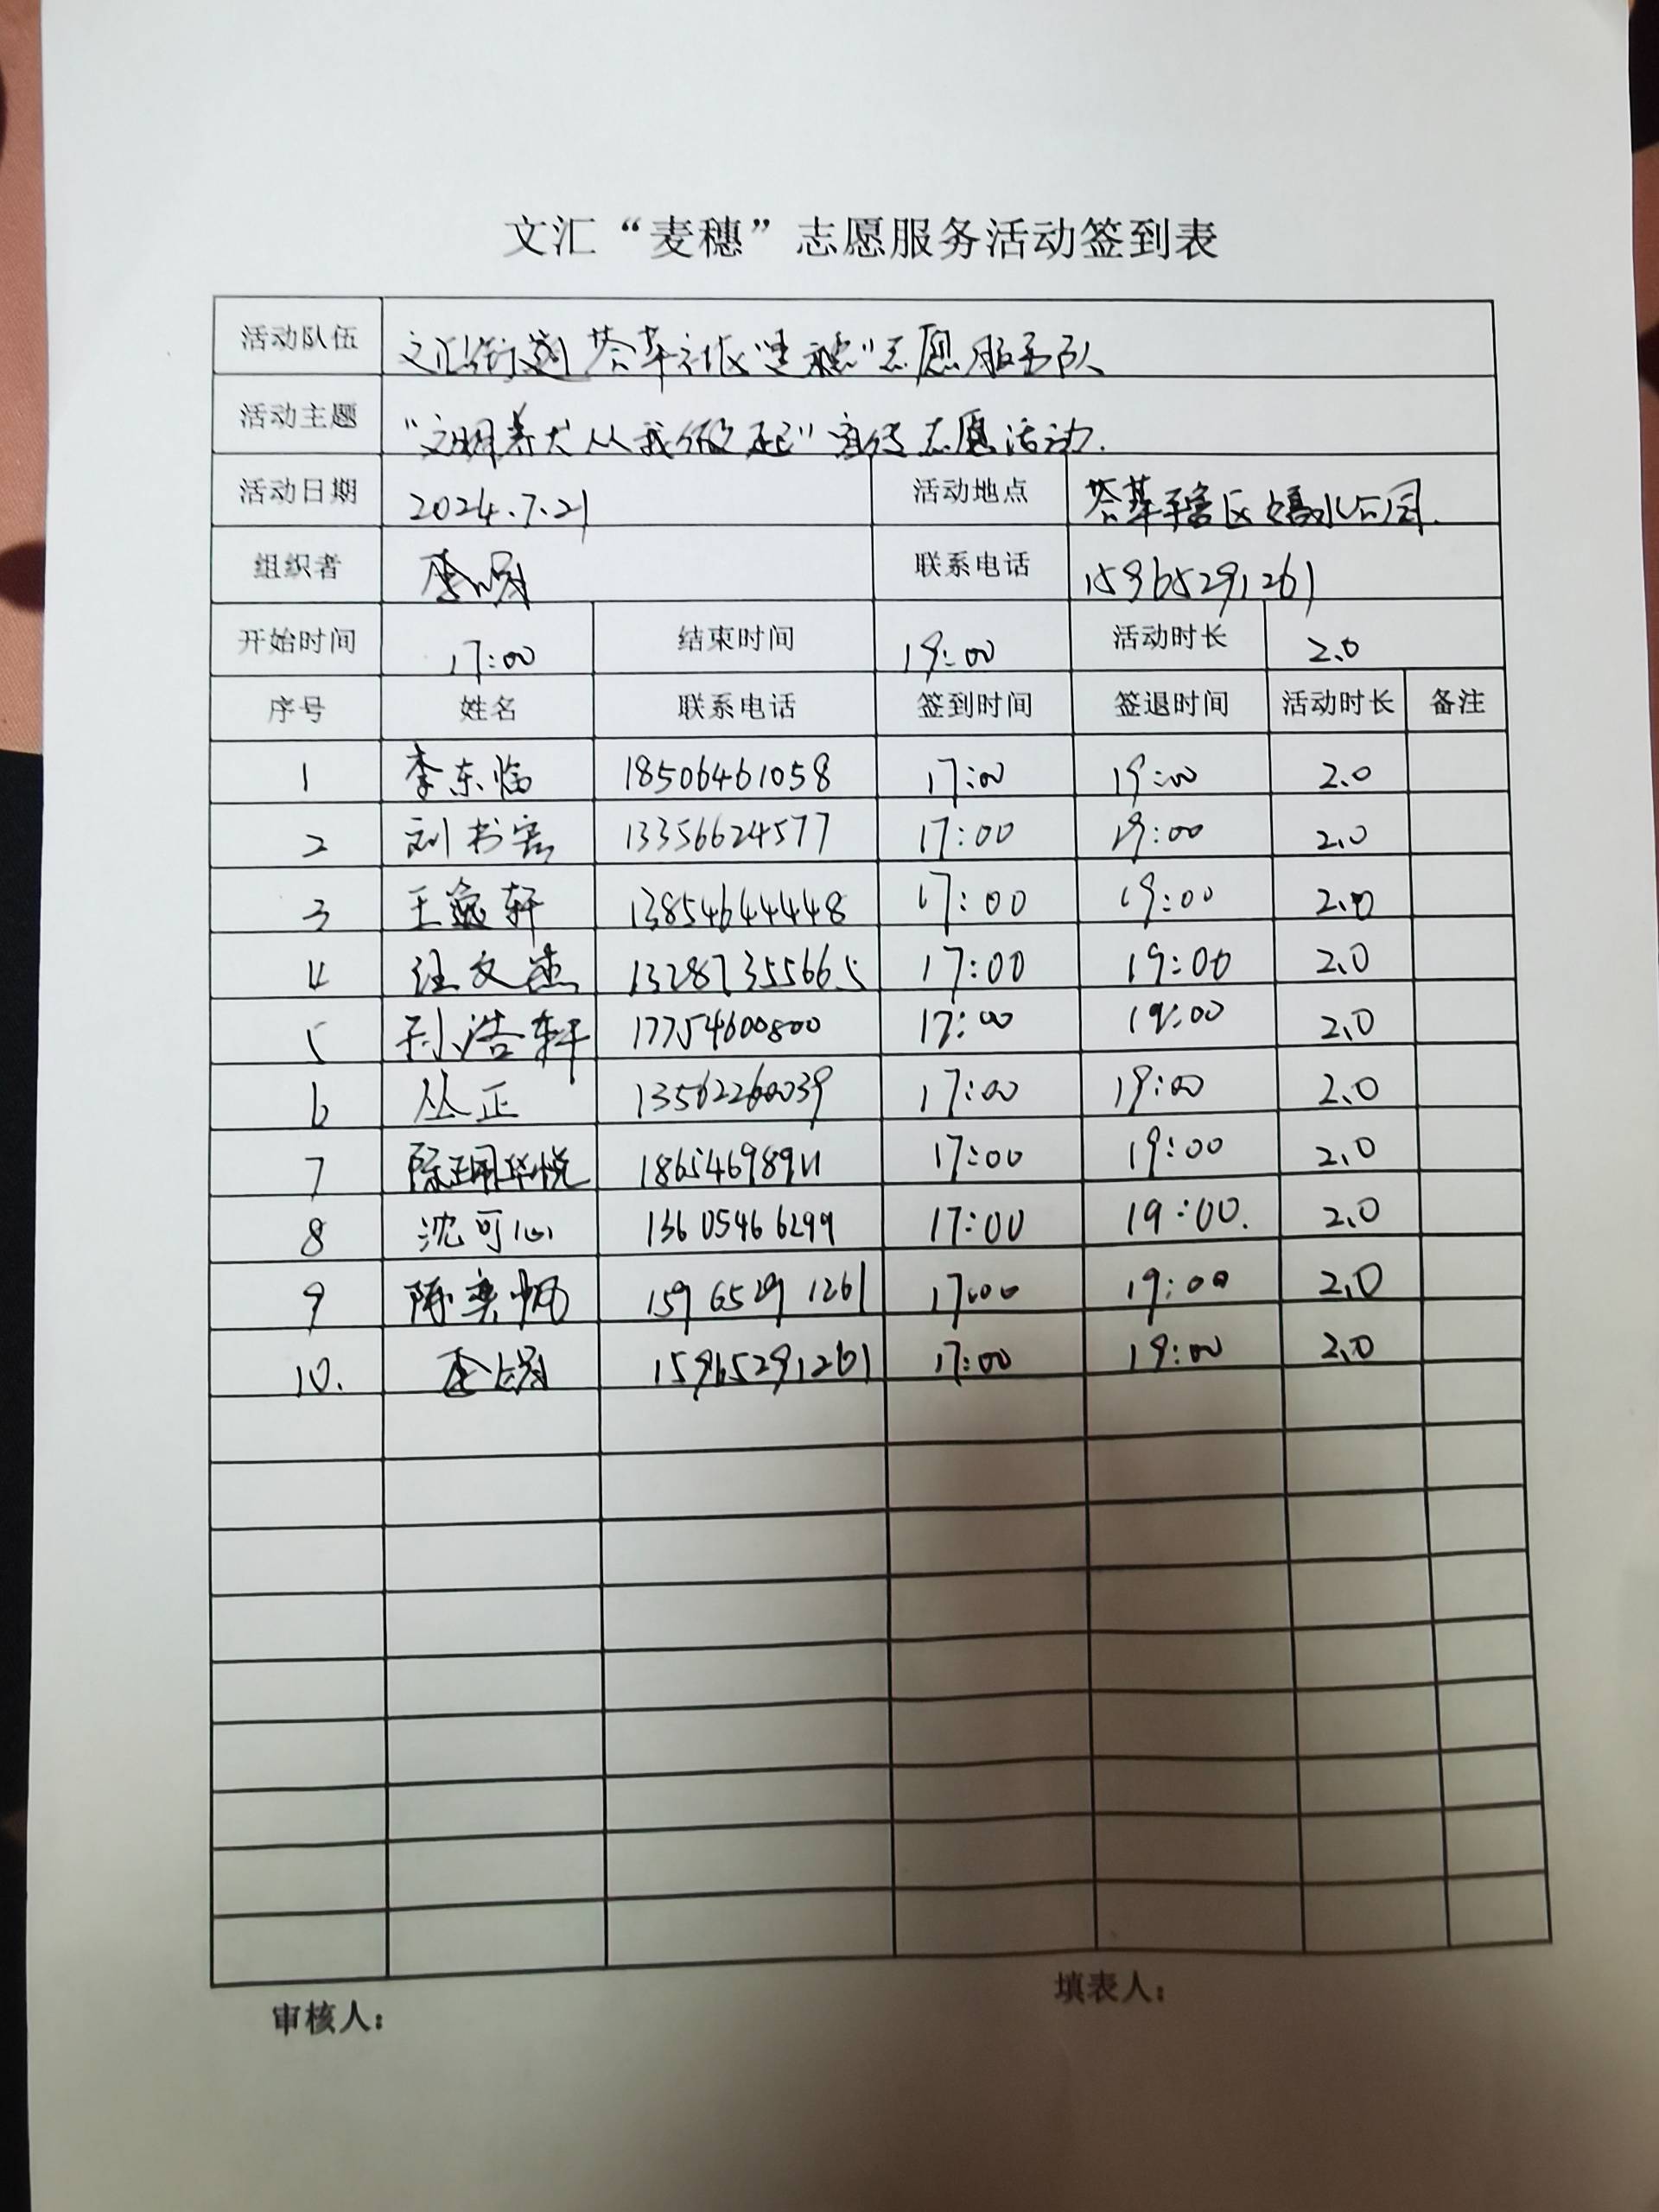 文汇“麦穗”志愿服务活动签到表
活动队伍 文汇街道荟萃社区“麦穗”志愿服务队
活动主题 “文明养犬从我做起”宣传志愿活动.
活动日期 2024.7.21 活动地点 荟萃辖区 公园.
组织者 联系电话 15965291261
开始时间 17:00 结束时间 19:00 活动时长 2.0
序号 姓名 联系电话 签到时间 签退时间 活动时长 备注
1 李东临 18506461058 17:00 19:00 2.0
2 刘书宏 13356624577 17:00 19:00 2.0
3 王逸轩 13854644448 17:00 19:00 2.0
4 汪文杰 13287355665 17:00 19:00 2.0
5 孙浩轩 17754600800 17:00 19:00 2.0
6 丛正 13562260039 17:00 19:00 2.0
7 17:00 19:00 2.0
8 沈可心 13605466299 17:00 19:00. 2.0
9 陈奕帆 15965291261 17:00 19:00 2.0
10. 15965291261 17:00 19:00 2.0
审核人： 填表人：